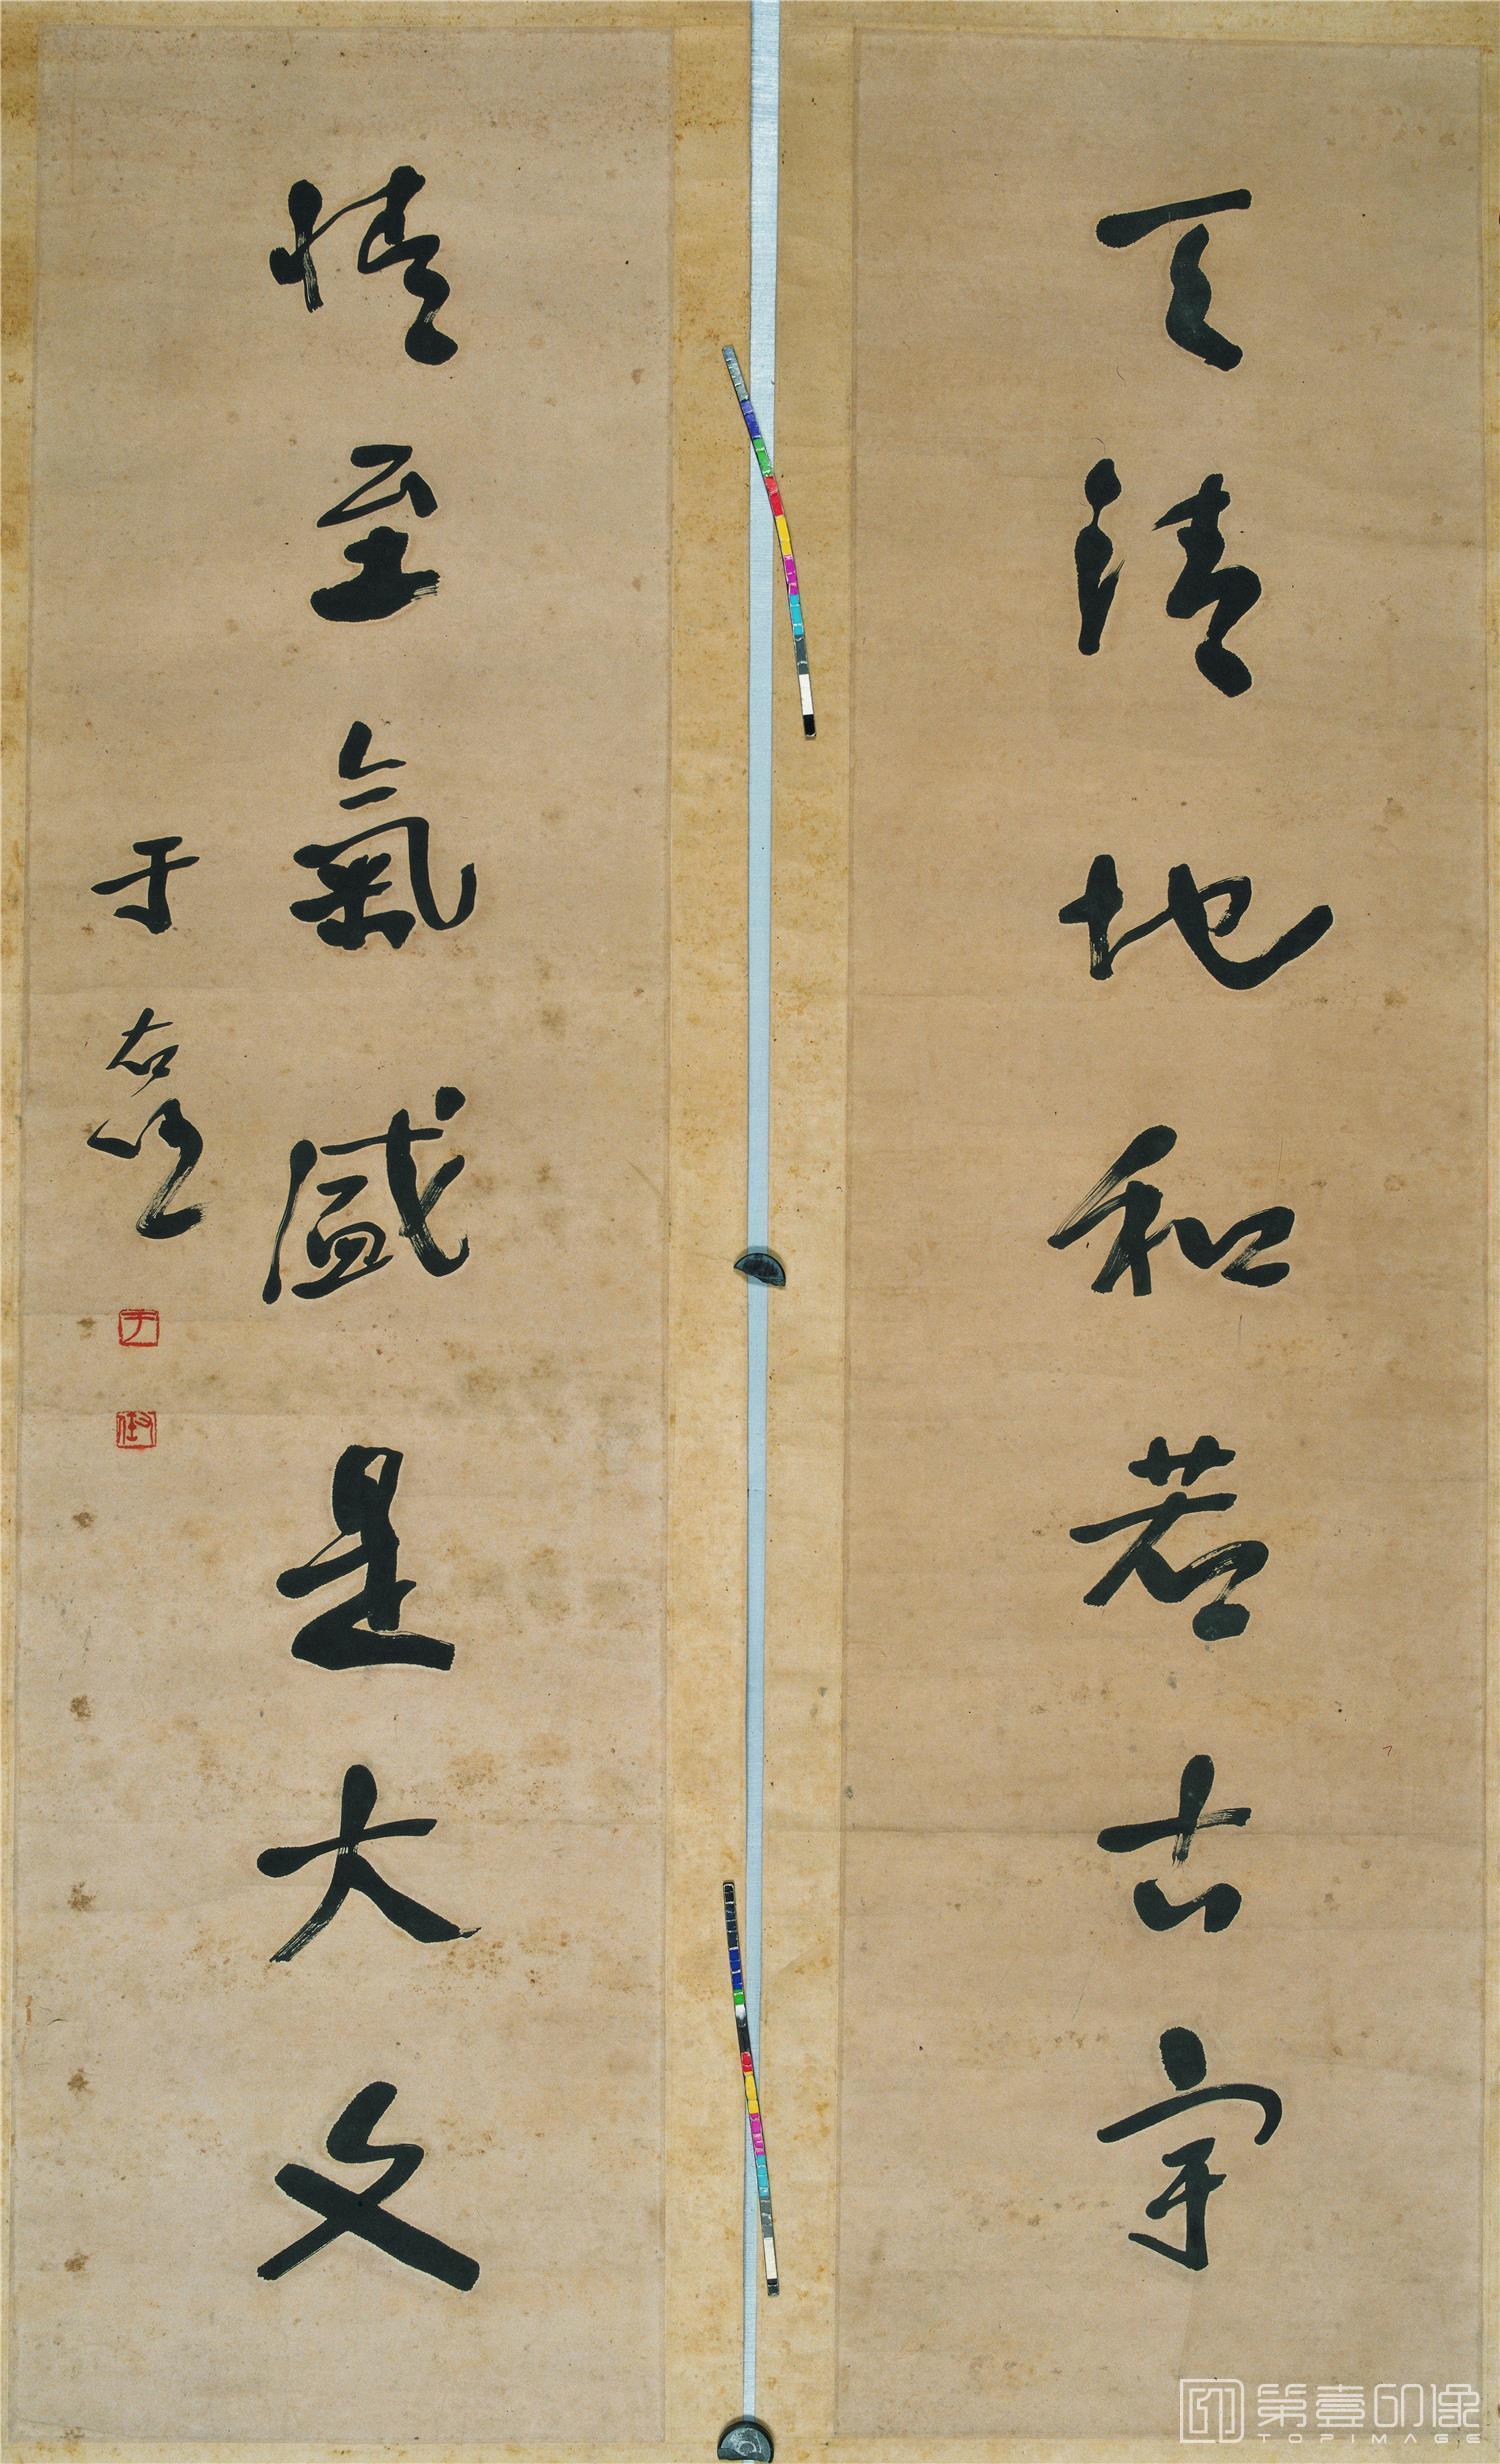 天清地和若古宇
情至氣盛是大文
于右任
第壹印像
TOPIMAGE